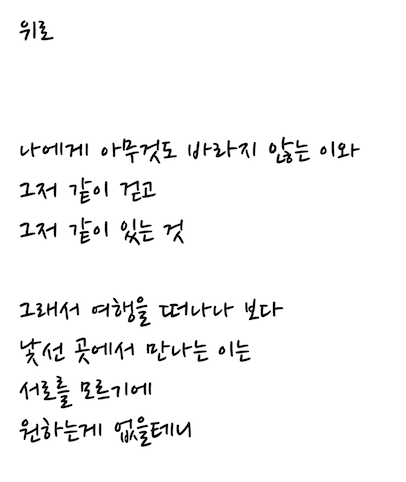 위로
나에게 아무것도 바라지 않는 이와
그저 같이 걷고
그저 같이 있는 것
그래서 여행을 떠나나 보다
낯선 곳에서 만나는 이는
서로를 모르기에
원하는게 없을테니